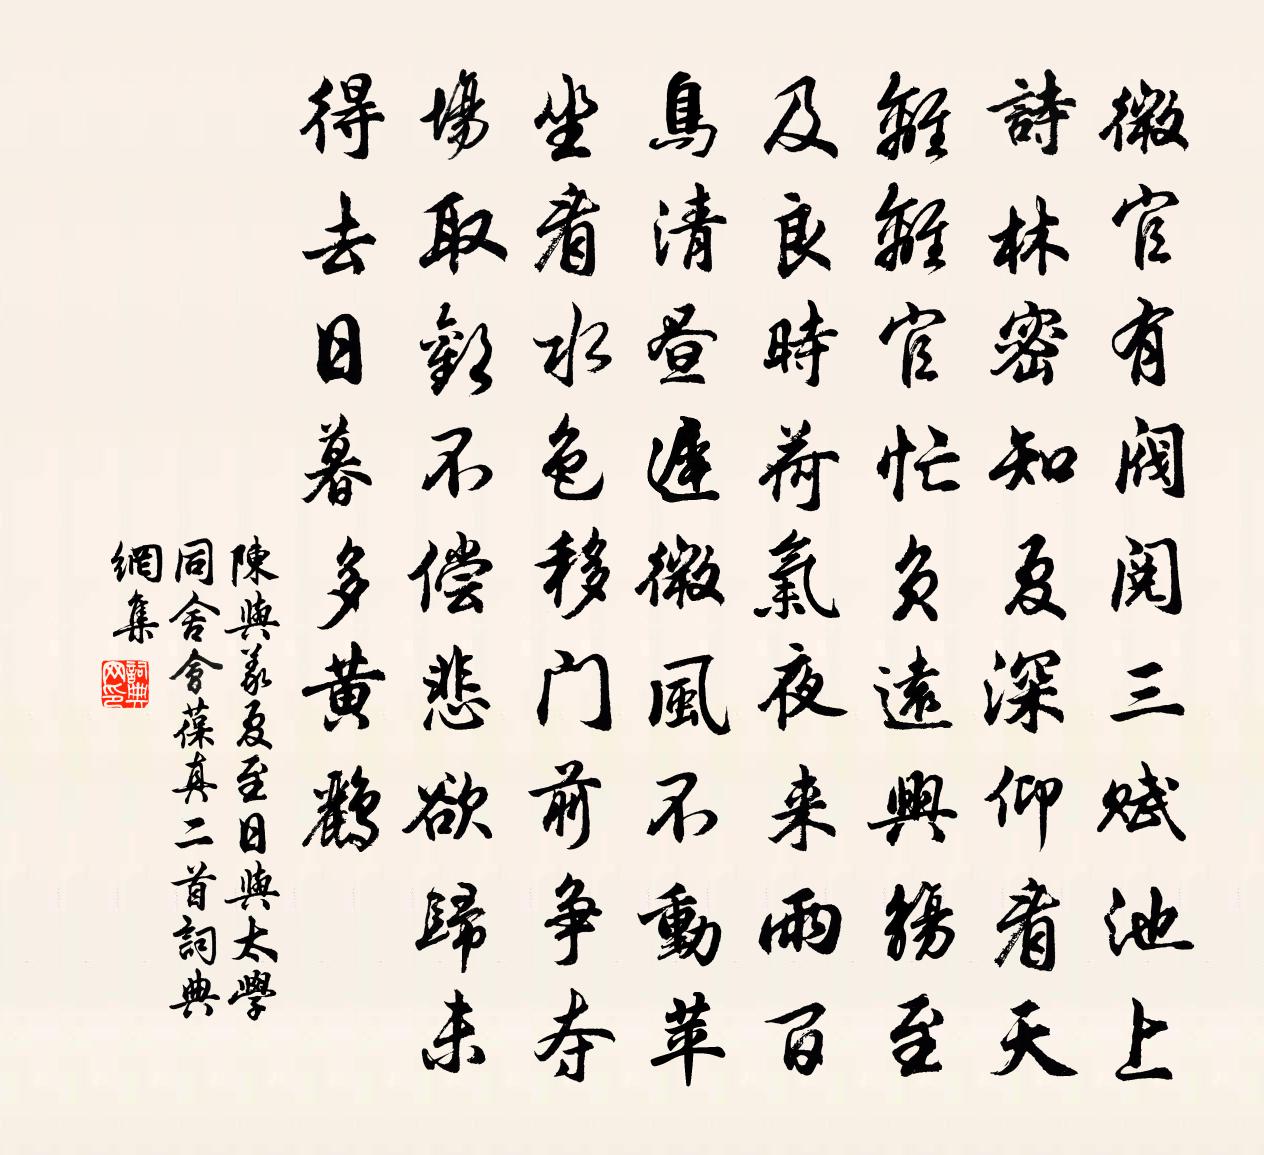 微官有阀阅三赋池上
詩林密知夏深仰看天
離離官忙负遠興觴至
及良時荷氣夜来雨百
鳥清昼遲微風不動苹
坐看水色移门前争夺
場取歡不偿悲欲歸未
得去日暮多黄鸝
陳與義夏至日與太學
同舍會葆真二首詞典
網集
詞典
网印